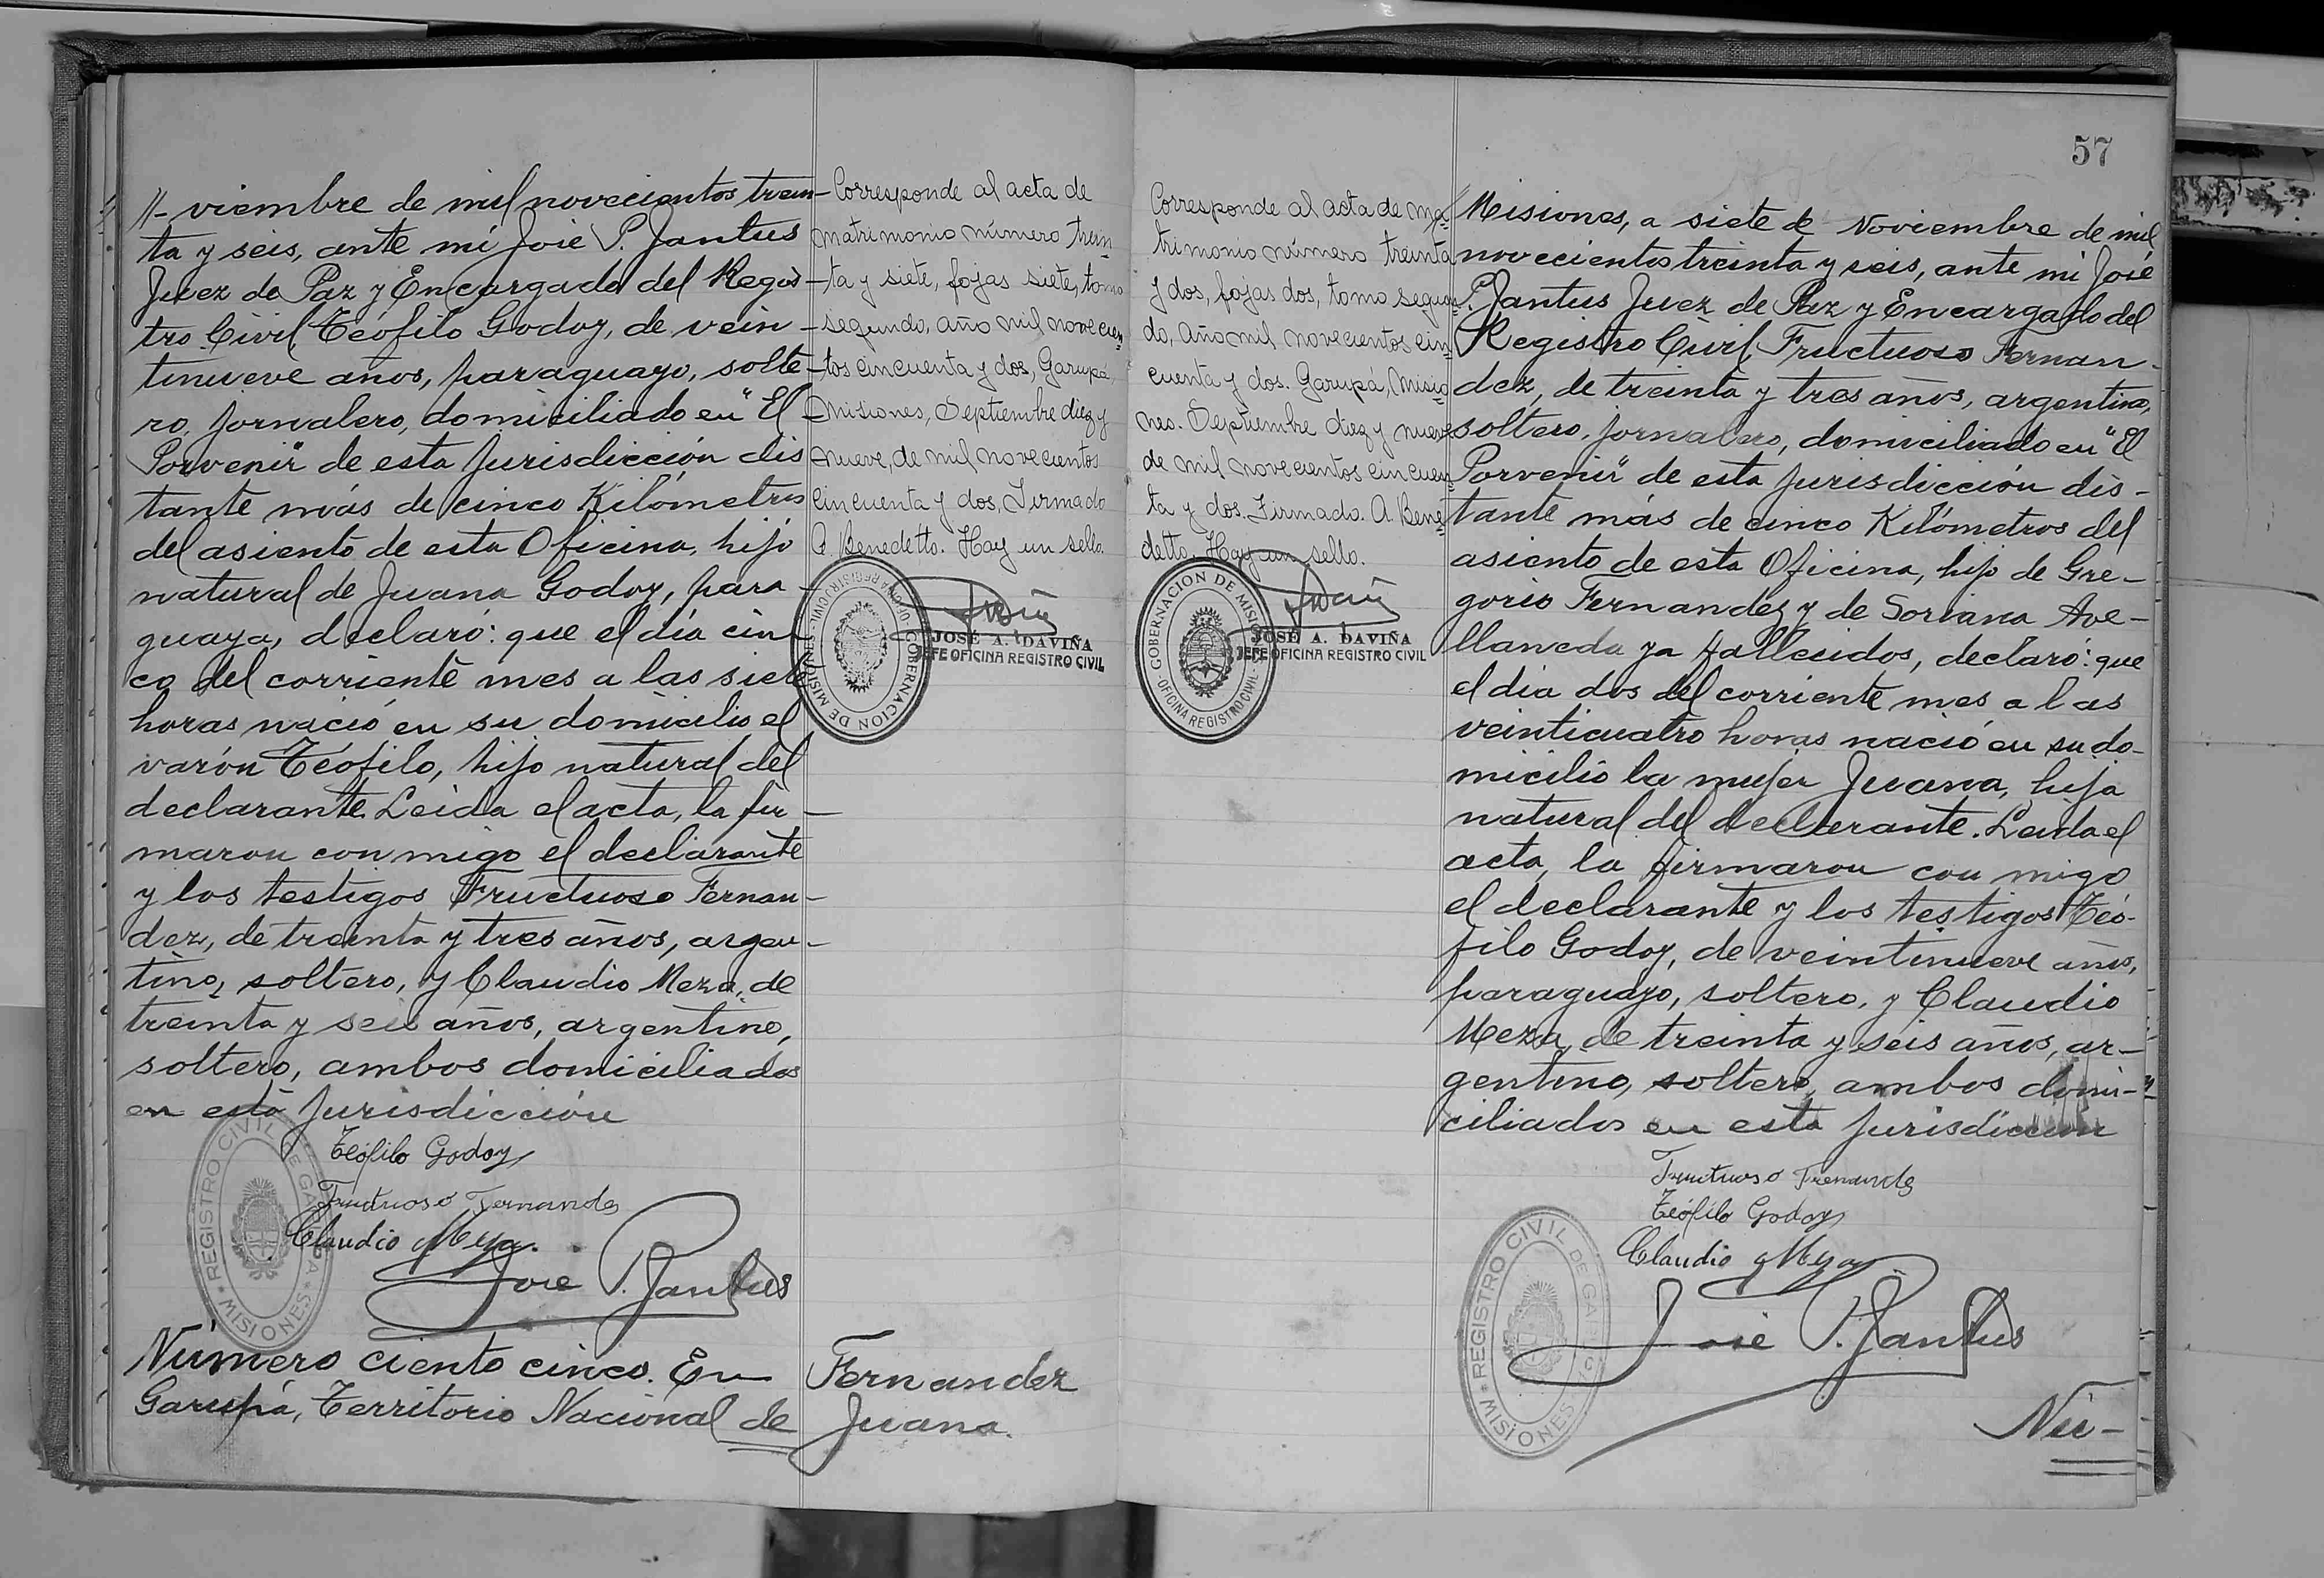 //- viembre de mil novecientos trein-
ta y seis, ante mi José P. Jantus
Juez de Paz y Encargado del Regis-
tro Civil Teófilo Godoy, de vein-
tinueve años, paraguayo, solte-
ro, jornalero, domiciliado en "El
Porvenir" de esta jurisdicción dis
tante más de cinco Kilómetros
del asiento de esta Oficina, hijo
natural de Juana Godoy, para-
guaya, declaró: que el día cin-
co del corriente mes a las siete
horas nació en su domicilio el
varón Teófilo, hijo natural del
declarante. Leida el acta, la fir-
maron con migo el declarante
y los testigos Fructuoso Fernan-
dez, de treinta y tres años, argen-
tino, soltero, y Claudio Meza, de
treinta y seis años, argentino,
soltero, ambos domiciliados
en esta jurisdicción
Teófilo Godoy
Fructuoso Fernandes
Claudio Meza.
José P. Jantus
REGISTRO CIVIL DE GARUPA
MISIONES
Número ciento cinco. En
Garupá, Territorio Nacional de
Corresponde al acta de
matrimonio número trein-
ta y siete, fojas siete, tomo
segundo, año mil novecien-
tos cincuenta y dos, Garupá,
Misiones, Septiembre diez y
nueve, de mil novecientos
cincuenta y dos, Firmado
A. Benedetto. Hay un sello.
GOBERNACION DE MISIONES
OFICINA REGISTRO CIVIL
JOSÉ A. DAVIÑA
JEFE OFICINA REGISTRO CIVIL
Fernandez
Juana.
57
Corresponde al acta de ma-
trimonio número treinta
y dos, fojas dos, tomo segun-
do, año mil novecientos cin-
cuenta y dos. Garupá, Misio-
nes. Septiembre diez y nueve
de mil novecientos cincuen-
ta y dos. Firmado. A. Bene-
detto. Hay un sello.
GOBERNACION DE MISIONES
OFICINA REGISTRO CIVIL
JOSÉ A. DAVIÑA
JEFE OFICINA REGISTRO CIVIL
Misiones, a siete de Noviembre de mil
novecientos treinta y seis, ante mi José
P. Jantus Juez de Paz y Encargado del
Registro Civil, Fructuoso Fernan-
dez, de treinta y tres años, argentino,
soltero, jornalero, domiciliado en "El
Porvenir" de esta jurisdicción dis-
tante más de cinco Kilómetros del
asiento de esta Oficina, hijo de Gre-
gorio Fernandez y de Soriana Ave-
llaneda ya fallecidos, declaró: que
el dia dos del corriente mes a las
veinticuatro horas nació en su do-
micilio la mujer Juana, hija
natural del declarante. Leida el
acta, la firmaron con migo
el declarante y los testigos Teó-
filo Godoy, de veintinueve años,
paraguayo, soltero, y Claudio
Meza, de treinta y seis años, ar-
gentino, soltero, ambos domi-
ciliados en esta jurisdiccion
Fructuoso Frenandes
Teófilo Godoy
Claudio Meza
José P. Jantus
REGISTRO CIVIL DE GARUPA
MISIONES
Nú-